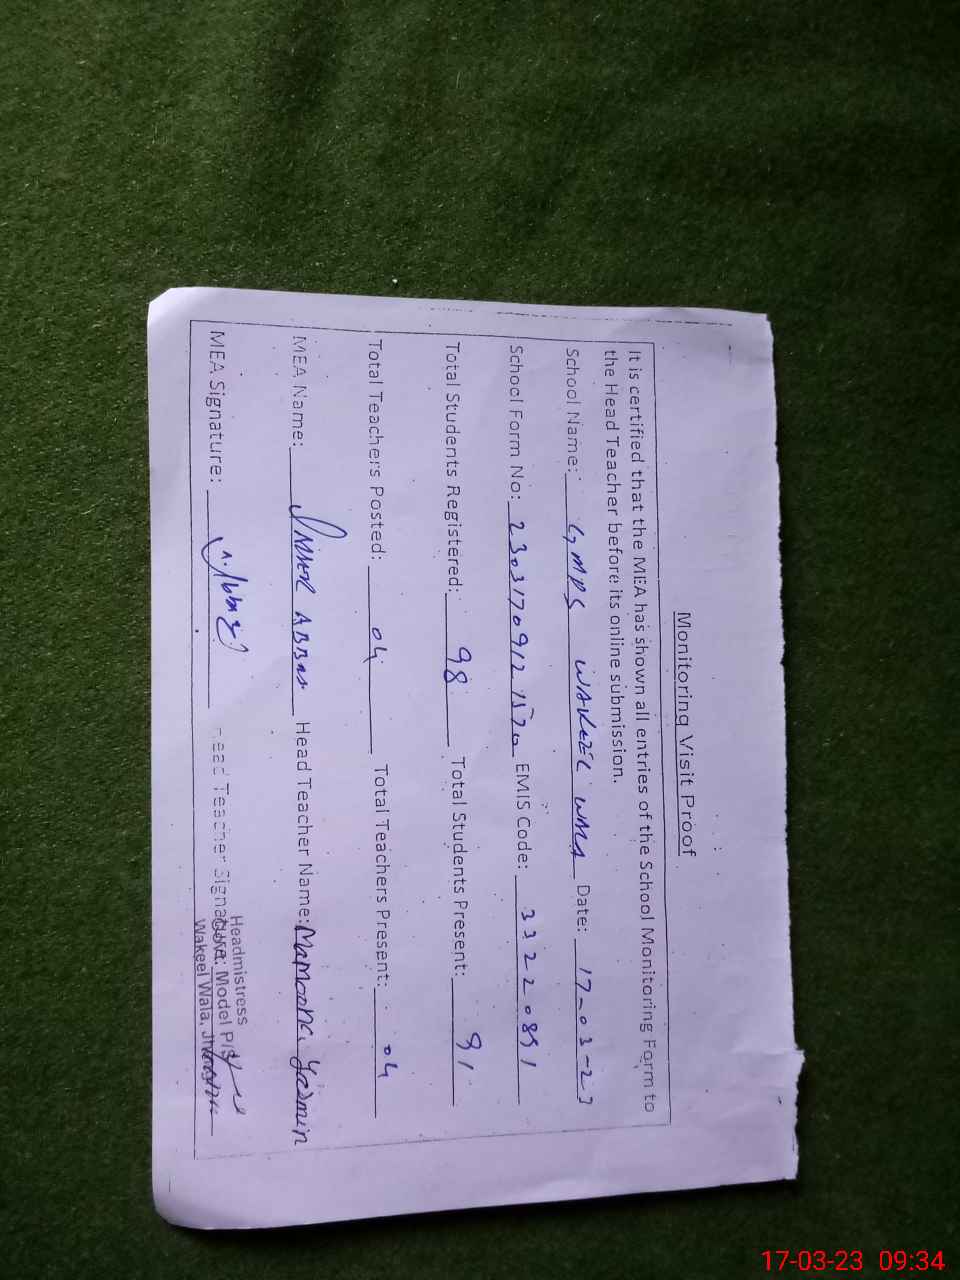 Monitoring Visit Proof
It is certified that the MEA has shown all entries of the School Monitoring Form to
the Head Teacher before its online submission.
School Name: GMPS WAKEEL WALA Date: 17-03-23
School Form No: 230317091215 EMIS Code: 33220891
Total Students Registered: 98 Total Students Present: 91
Total Teachers Posted: 04 Total Teachers Present: 04
MEA Name: ABBAS Head Teacher Name: Mamoona Yasmin
MEA Signature: Head Teacher Signature:
Headmistress
Govt. Model P/S
Wakeel Wala, Jhang
17-03-23 09:34